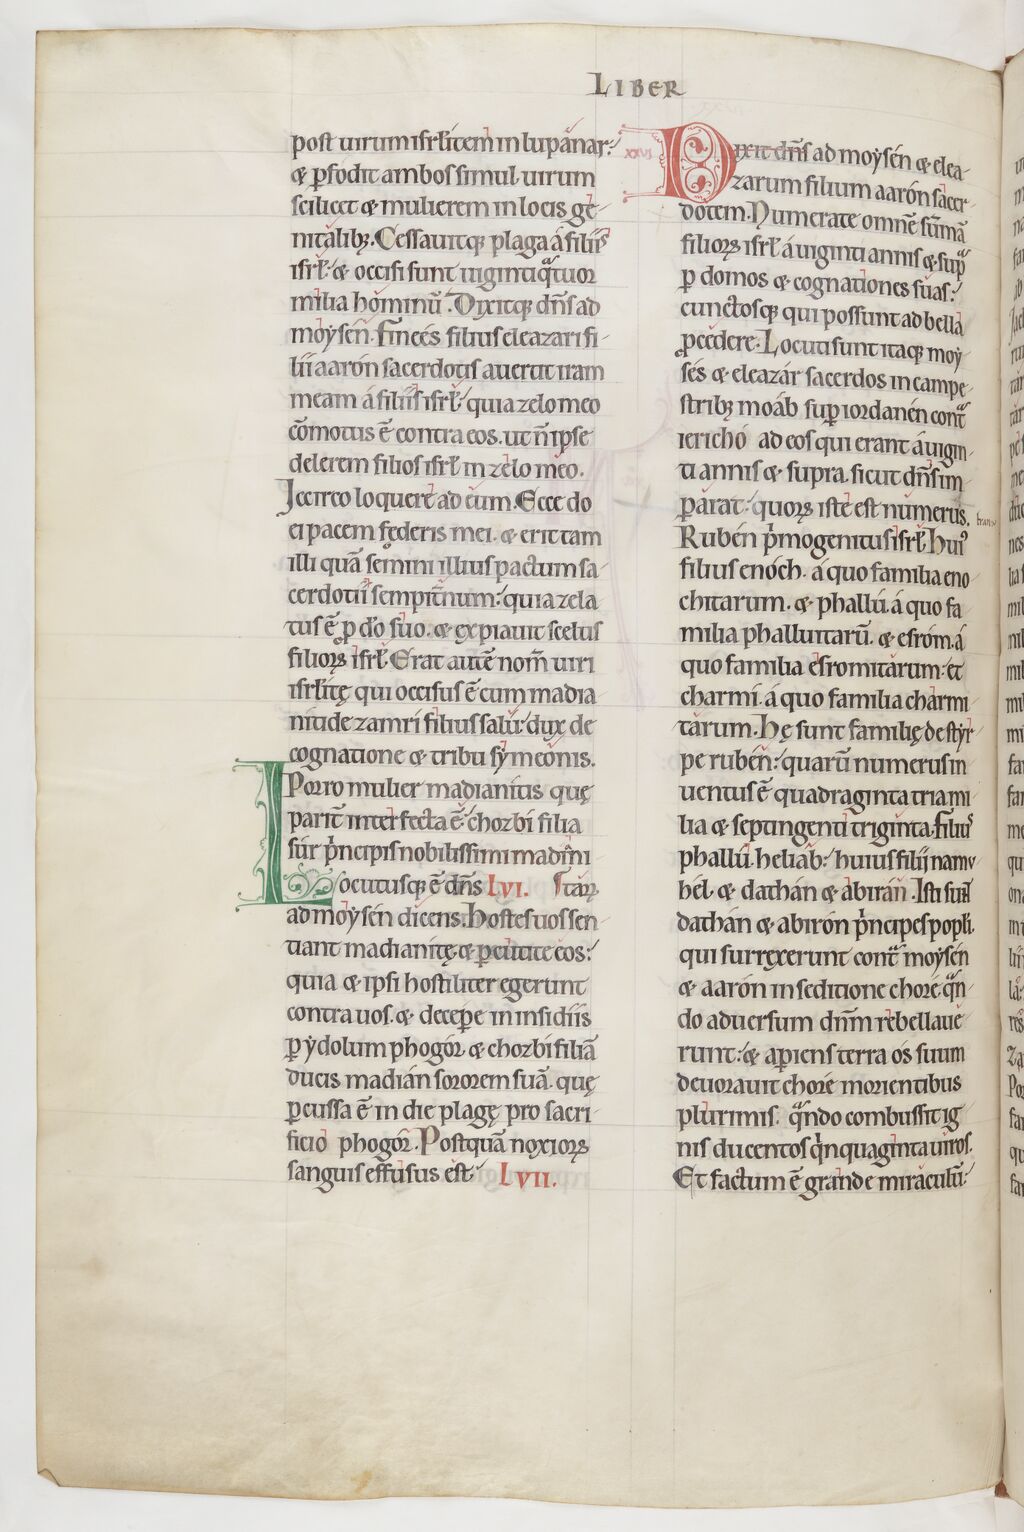 LIBER
post uirum isrl̄item in lupánar:
& ꝑfodit ambos simul uirum
scilicet & mulierem in locis ge-
nitalibꝫ. Cessauitqꝫ plaga á filiis
isrl̄. & occisi sunt uiginti quatuor
milia hominū. Dixitqꝫ dn̄s ad
moẏsen. Finees filius eleazari fi-
lii aarón sacerdotis auertit iram
meam á filiis isrl̄. quia zelo meo
cōmotus ē contra eos. ut n̄ ipse
delerem filios isrl̄ in zelo meo.
Iccirco loquere ad eum. Ecce do
ei pacem fęderis mei. & erit tam
illi quā semini illius pactum sa-
cerdotii sempit̄num: quia zela
tus ē ꝑ do suo. & expiauit scelus
filioꝝ isrl̄. Erat autē nom̄ uiri
isrl̄itę qui occisus ē cum madia
nitide zamri filius salu. dux de
cognatione & tribu sẏmeonis.
Porro mulier madianitis quę
parit̄ interfecta ē. chozbi filia
súr pͥncipis nobilissimi madiani
Locutusqꝫ ē dn̄s LVI. tarꝝ
ad moẏsén dicens. Hostes uos sen-
tiant madianitę & ꝑcutite eos:
quia & ipsi hostiliter egerunt
contra uos. & decepe in insidiis
ꝑ ẏdolum phogór. & chozbi filiā
ducis madián sororem suā. quę
ꝑcussa ē in die plagę pro sacri-
ficio phogór. Postquā noxioꝝ
sanguis effusus est. LVII.
XXVI
Dixit dn̄s ad moẏsén & elea-
zarum filium aarón sacer-
dotem. Numerate omnē sūmā
filioꝝ isrl̄ á uiginti annis & supᷓ
ꝑ domos & cognationes suas:
cunctosqꝫ qui possunt ad bella
ꝓcedere. Locuti sunt itaqꝫ moẏ-
sés & eleazár sacerdos in campe-
stribꝫ moáb supͥ iordanén contᷓ
ierichó ad eos qui erant á uigin-
ti annis & supra. sicut dn̄s im-
ꝑarat: quoꝝ iste est numerus.
Rubén pͥmogenitus isrl̄. Huiꝰ
filius enóch. á quo familia eno
chitarum. & phallú. á quo fa
milia phalluitarū. & esróm. á
quo familia esromitarum: et
charmi. á quo familia charmi
tarum. Hę sunt familię de stir-
pe rubén: quarū numerus in
uentus ē quadraginta tria mi
lia & septingenti triginta. Filiꝰ
phallú. heliáb: huius filii namu-
hél & dathán & abirán. Isti sunt
dathán & abirón pͥncipes popli.
qui surrexerunt contᷓ moẏsén
& aarón in seditione choré. qᷓn
do aduersum dnm̄ rebellaue
runt: & apiens terra ós suum
deuorauit choré morientibus
plurimis. qᷓndo combussit ig-
nis ducentos qͥnquaginta uiros.
Et factum ē grande miraculū: